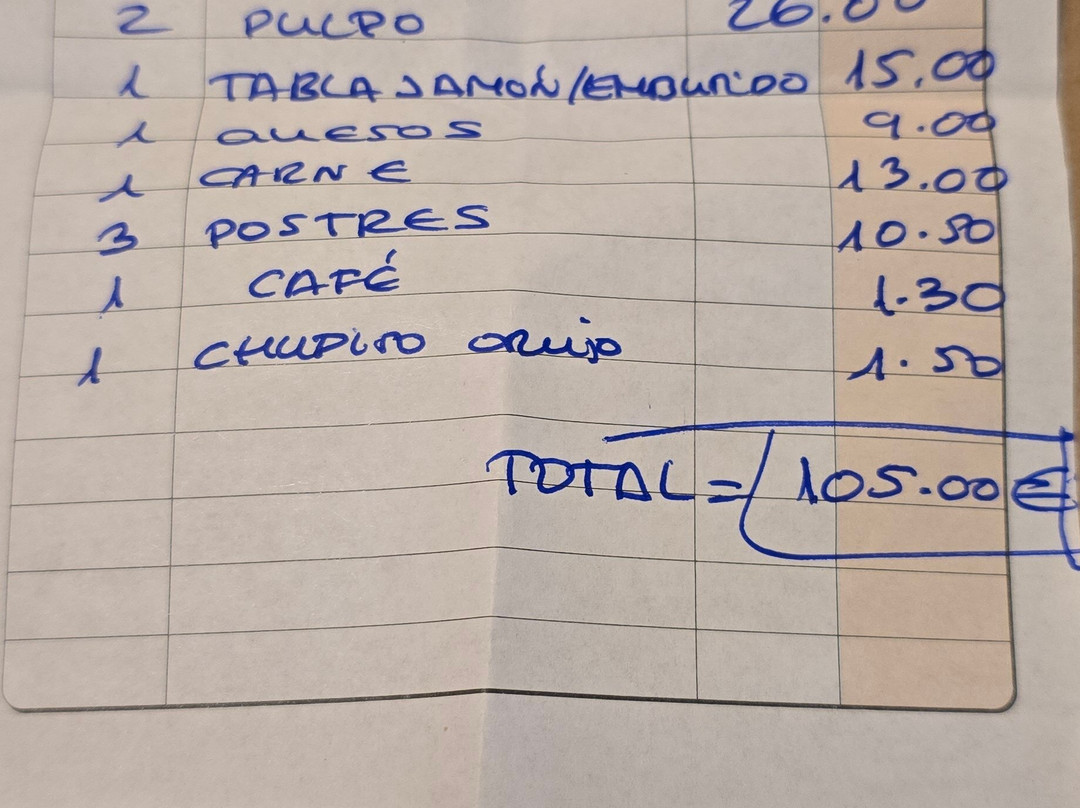 2 PULPO 26.00
1 TABLA JAMÓN/EMBUTIDO 15.00
1 QUESOS 9.00
1 CARNE 13.00
3 POSTRES 10.50
1 CAFÉ 1.30
1 CHUPITO ORUJO 1.50
TOTAL = 105.00 €